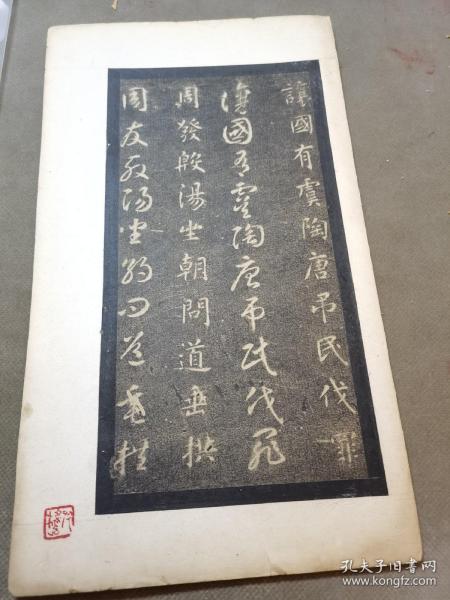 讓國有虞陶唐吊民伐罪
讓國有虞陶唐吊民伐罪
周發殷湯坐朝問道垂拱
周發殷湯坐朝問道垂拱
孔夫子旧书网
www.kongfz.com